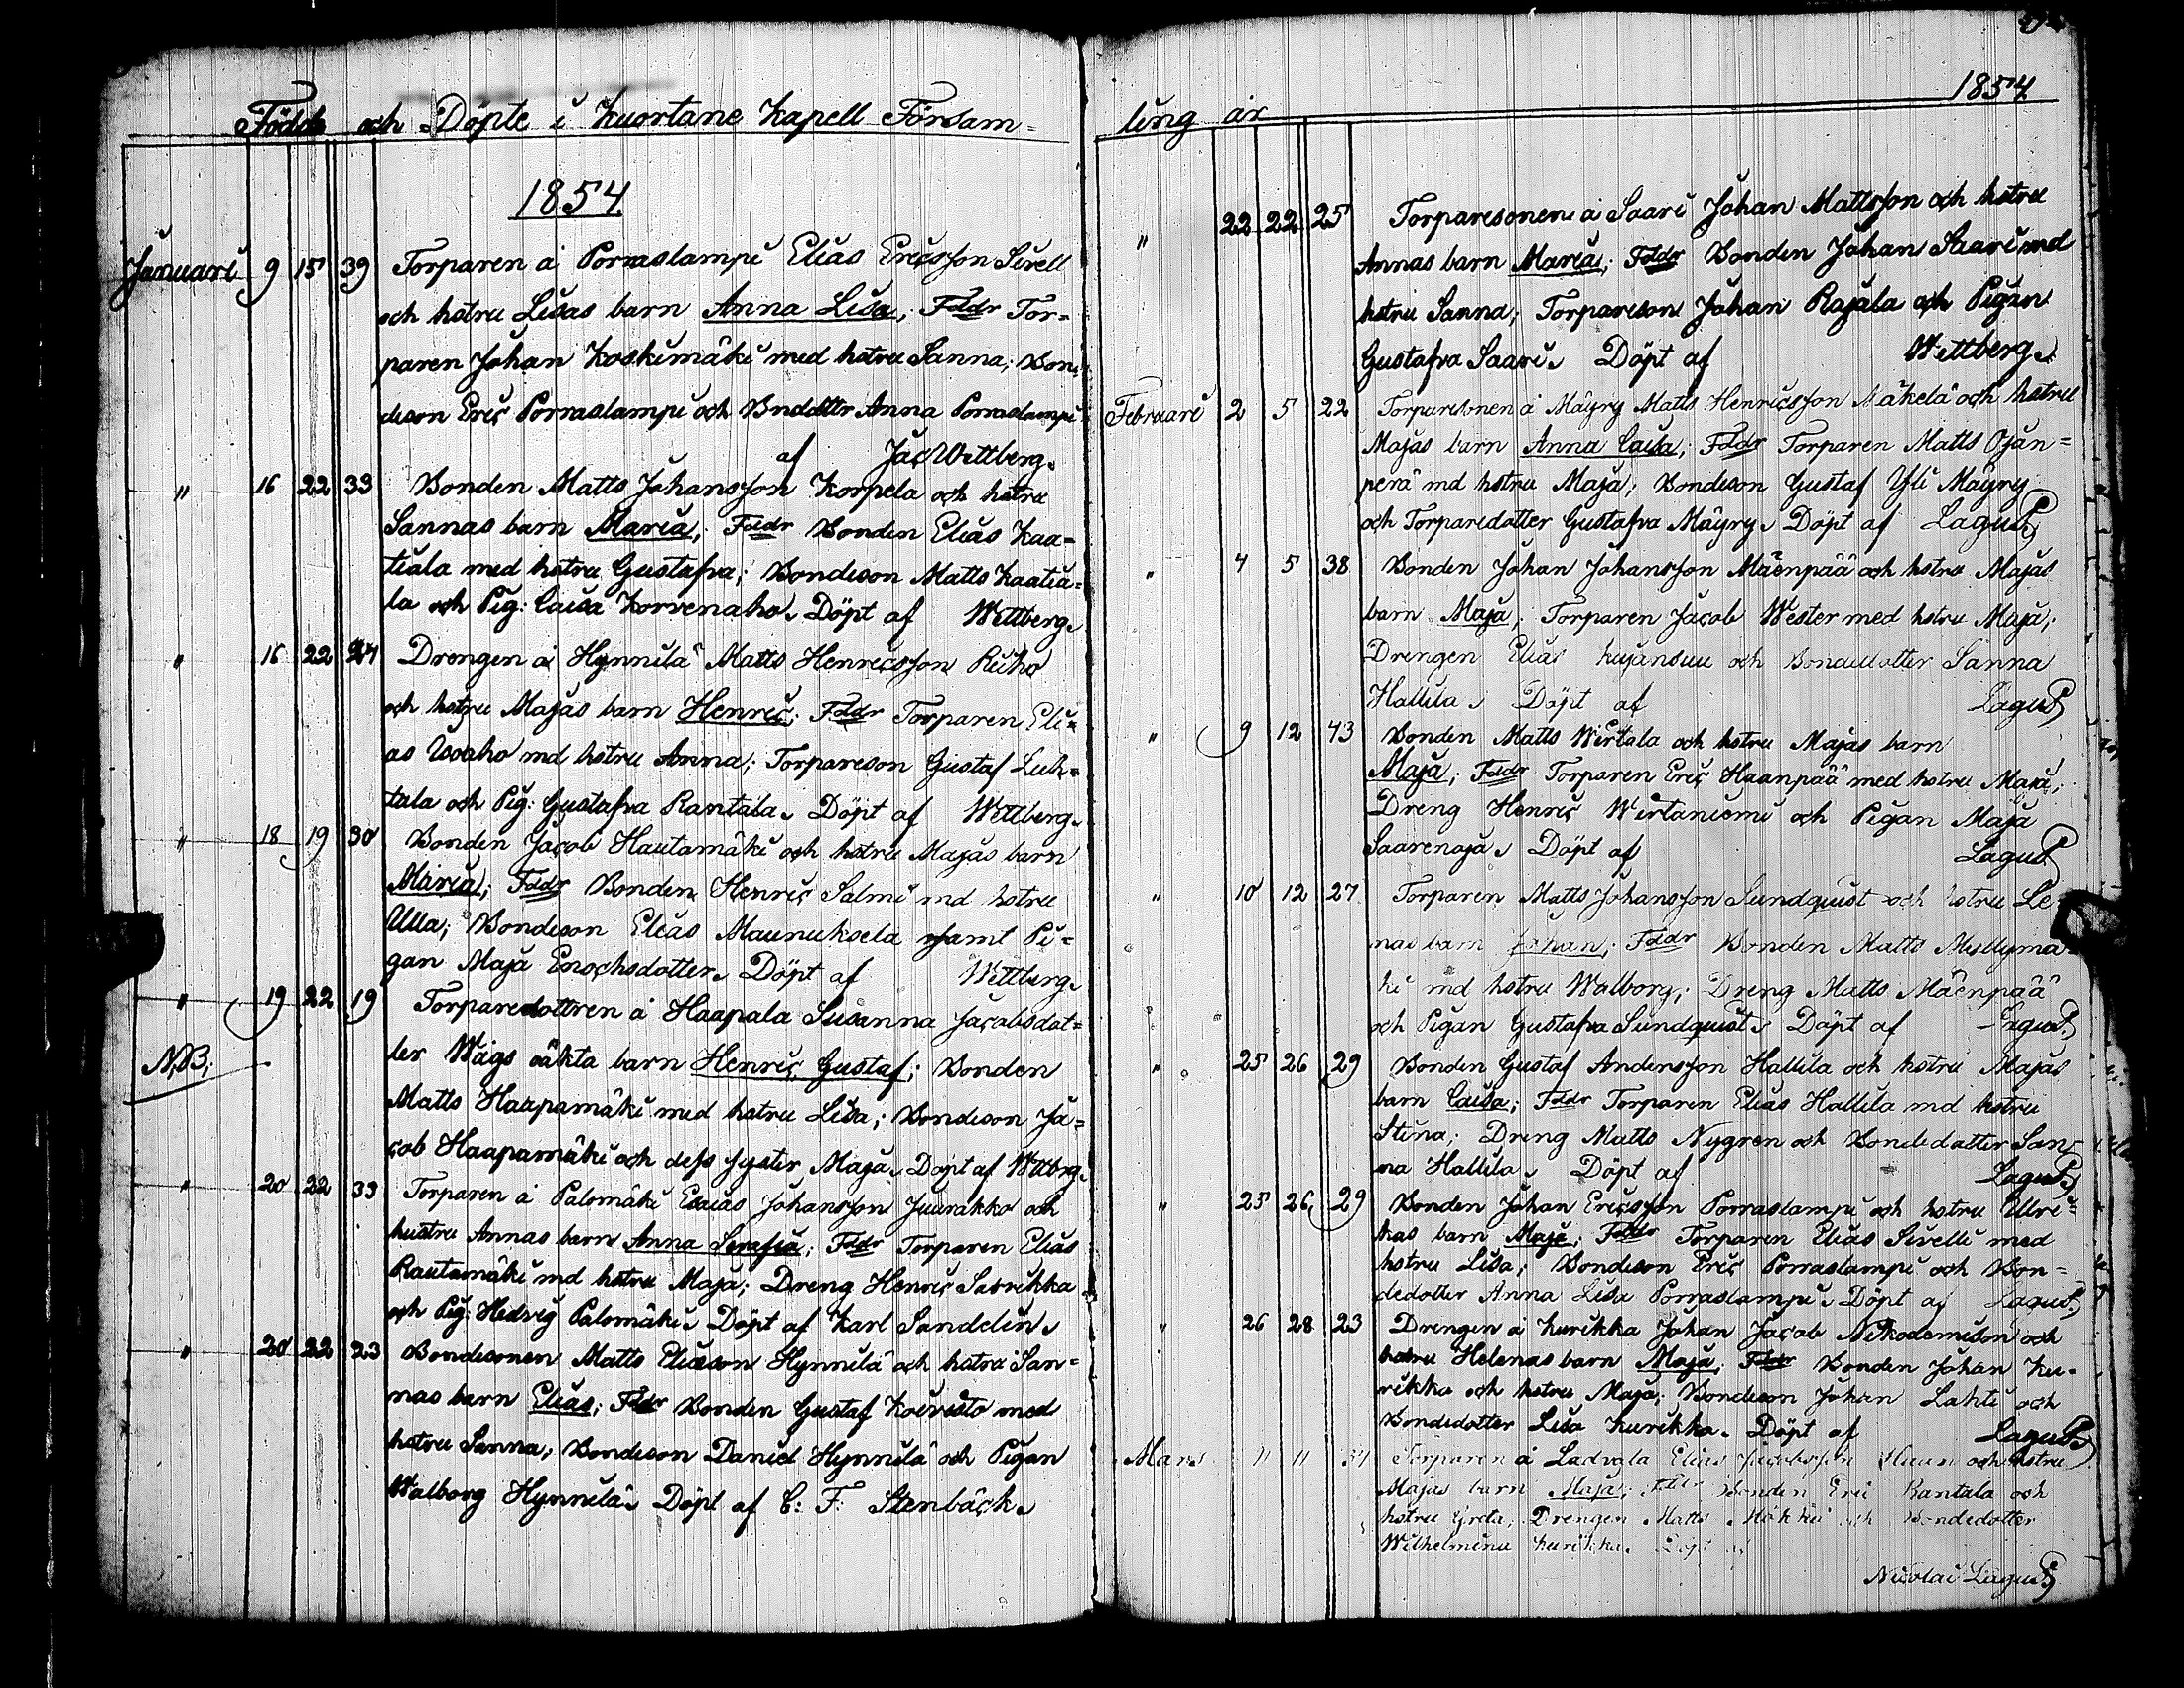 Födde och Döpte i Kuortane Kapell Församling år 1854
1854.
Januari 9 15 39 Torparen å Porraslampi Elias Ericsson Sivell
och hstru Lisas barn Anna Lisa; Fddr Tor=
paren Johan Koskimäki med hstru Sanna; Bon=
deson Eric Porraslampi och Bndottr Anna Porraslampi
af Jac Wettberg.
" 16 22 33 Bonden Matts Johansson Korpela och hstru
Sannas barn Maria; Fddr Bonden Elias Kaa=
tiala med hstru Gustafva; Bondeson Matts Kaatia=
la och Pig: Caisa Korvenaho. Döpt af Wettberg.
" 16 22 24 Drengen å Hynnilä Matts Henricsson Riiho
och hstru Majas barn Henric; Fddr Torparen Eli=
as Uvaho md hstru Anna; Torpareson Gustaf Luh=
tala och Pig: Gustafva Rantala. Döpt af Wettberg.
" 18 19 30 Bonden Jacob Hautamäki och hstru Majas barn
Maria; Fddr Bonden Henric Salmi md hstru
Ulla; Bondeson Elias Maunuksela samt Pi=
gan Maja Enochsdotter. Döpt af Wettberg.
" 19 22 19 Torparedottren å Haapala Susanna Jacobsdot=
N.B; ter Wägs oäkta barn Henric Gustaf; Bonden
Matts Haapamäki med hstru Lisa; Bondeson Ja=
cob Haapamäki och dess syster Maja. Döpt af Wttbrg.
" 20 22 33 Torparen å Palomäki Esaias Johansson Juurakko och
hustru Annas barn Anna Serafia; Fddr Torparen Elias
Rautamäki md hstru Maja; Dreng Henric
och Pig: Hedvig Palomäki. Döpt af Karl Sandelin.
" 20 22 23 Bondesonen Matts Eliasson Hynnilä och hstru San=
nas barn Elias; Fddr Bonden Gustaf Koivisto med
hstru Sanna; Bondeson Daniel Hynnilä och Pigan
Walborg Hynnilä. Döpt af C: F: Stenbäck.
1854.
" 22 22 25 Torparesonen å Saari Johan Mattsson och hstru
Annas barn Maria; Fddr Bonden Johan Saari md
hstru Sanna; Torpareson Johan Rajala och Pigan
Gustafva Saari. Döpt af Wettberg.
Februari 2 5 22 Torparesonen å Mäyry Matts Henricsson Mäkelä och hstru
Majas barn Anna Caisa; Fddr Torparen Matts Ojan=
perä md hstru Maja; Bondeson Gustaf Yli Mäyry
och Torparedotter Gustafva Mäyry. Döpt af Lagus
" 4 5 38 Bonden Johan Johansson Mäenpää och hstru Majas
barn Maja; Torparen Jacob Wester med hstru Maja;
Drengen Elias Kujansuu och Bondedotter Sanna
Hallila. Döpt af Lagus
" 9 12 43 Bonden Matts Wirtala och hstru Majas barn
Maja; Fddr Torparen Eric Haanpää med hstru Maja;
Dreng Henric Wirtaniemi och Pigan Maja
Saarenoja. Döpt af Lagus
" 10 12 27 Torparen Matts Johansson Sundquist och hstru Le=
nas barn Johan; Fddr Bonden Matts Myllymä=
ki md hstru Walborg; Dreng Matts Mäenpää
och Pigan Gustafva Sundquist. Döpt af Lagus
" 25 26 29 Bonden Gustaf Andersson Hallila och hstru Majas
barn Caisa; Fddr Torparen Elias Hallila md hstru
Stina; Dreng Matts Nygren och Bondedotter San=
na Hallila. Döpt af Lagus
" 25 26 29 Bonden Johan Ericsson Porraslampi och hstru Ulri=
kas barn Maja; Fddr Torparen Elias Sivelli med
hstru Lisa; Bondeson Eric Porraslampi och Bon=
dedotter Anna Lisa Porraslampi. Döpt af Lagus
" 26 28 23 Drengen å Kurikka Johan Jacob Nikodemison och
hstru Helenas barn Maja; Fddr Bonden Johan Ku=
rikka och hstru Maja; Bondeson Johan Lahti och
Bondedotter Lisa Kurikka. Döpt af Lagus
Mars 11 11 Torparen å Ladvala Elias Jacobsson och hstru
Majas barn Maja; Fddr Bonden Eric Rantala och
hstru Greta; Drengen Matts och Bondedotter
Wilhelmina Kurikka. Döpt af
Nicolai Lagus